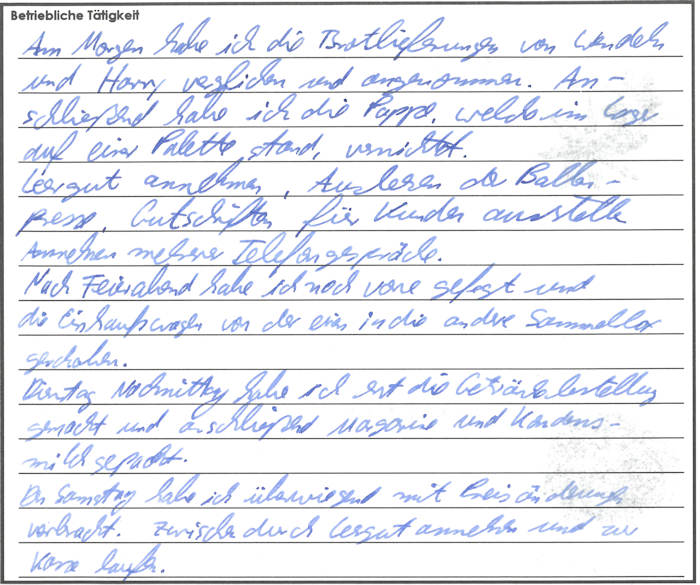 Betriebliche Tätigkeit
Am Morgen habe ich die Brotlieferungen von Wendeln
und Harry verglichen und angenommen. An-
schließend habe ich die Pappe, welche im Lager
auf einer Palette stand, vernichtet.
Leergut annehmen, Ausleeren der Ballen-
presse, Gutschriften für Kunden ausstellen
Annehmen mehrerer Telefongespräche.
Nach Feierabend habe ich noch vorne gefegt und
die Einkaufswagen von der einen in die andere Sammelbox
geschoben.
Dienstag Nachmittag habe ich erst die Getränkebestellung
gemacht und anschließend Margarine und Kondens-
milch gepackt.
Den Samstag habe ich überwiegend mit Preisänderungen
verbracht. Zwischendurch Leergut annehmen und zur
Kasse laufen.